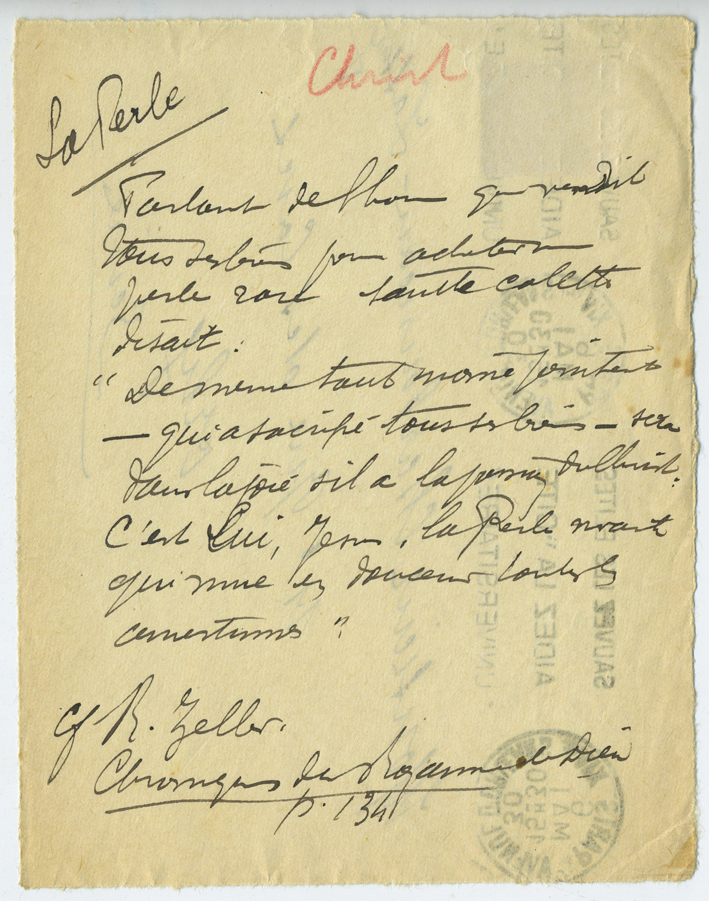 Christ
La Perle
Parlant de l'hom qui vendit
tous ses biens pour acheter une
perle rare sainte Colette
disait :
" De même tout moine pénitent
— qui a sacrifié tous ses biens — sera
dans la joie s'il a la du Christ.
C'est Lui, Jesus, la Perle vivante
qui mue en douceur toutes les
amertumes ".
cf R. Zeller.
Chroniques du Royaume de Dieu
p. 134
SAUVEZ LES
AIDEZ LA
UNIVERSITAI
15H30
30
MAI
PARIS